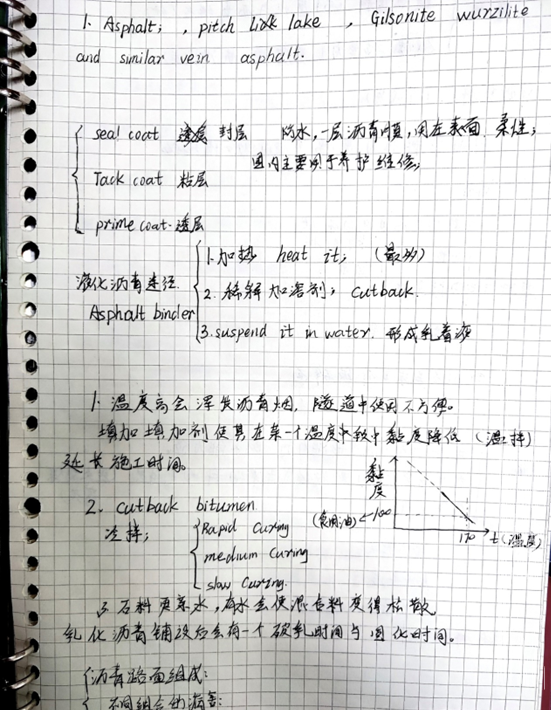 1. Asphalt; , pitch lake , Gilsonite wurzilite
and similar vein asphalt.
seal coat 封层 防水,一层沥青膜,用在表面 柔性;
国内主要用于养护维修;
Tack coat 粘层
prime coat. 透层
液化沥青途径
Asphalt binder
1. 加热 heat it; (最多)
2. 稀释加溶剂; cutback.
3. suspend it in water. 形成乳着液
1. 温度高会挥发沥青烟, 隧道中使用不方便。
填加填加剂使其在某一个温度中黏度降低 (温拌)
延长施工时间。
黏度
(食用油) <100
170 t(温度)
2. cutback bitumen
冷拌;
Rapid Curing
medium Curing
slow Curing.
3 石料更亲水,有水会使混合料变得松散
乳化沥青铺设后会有一个破乳时间与固化时间。
沥青路面组成:
不同组合的病害: